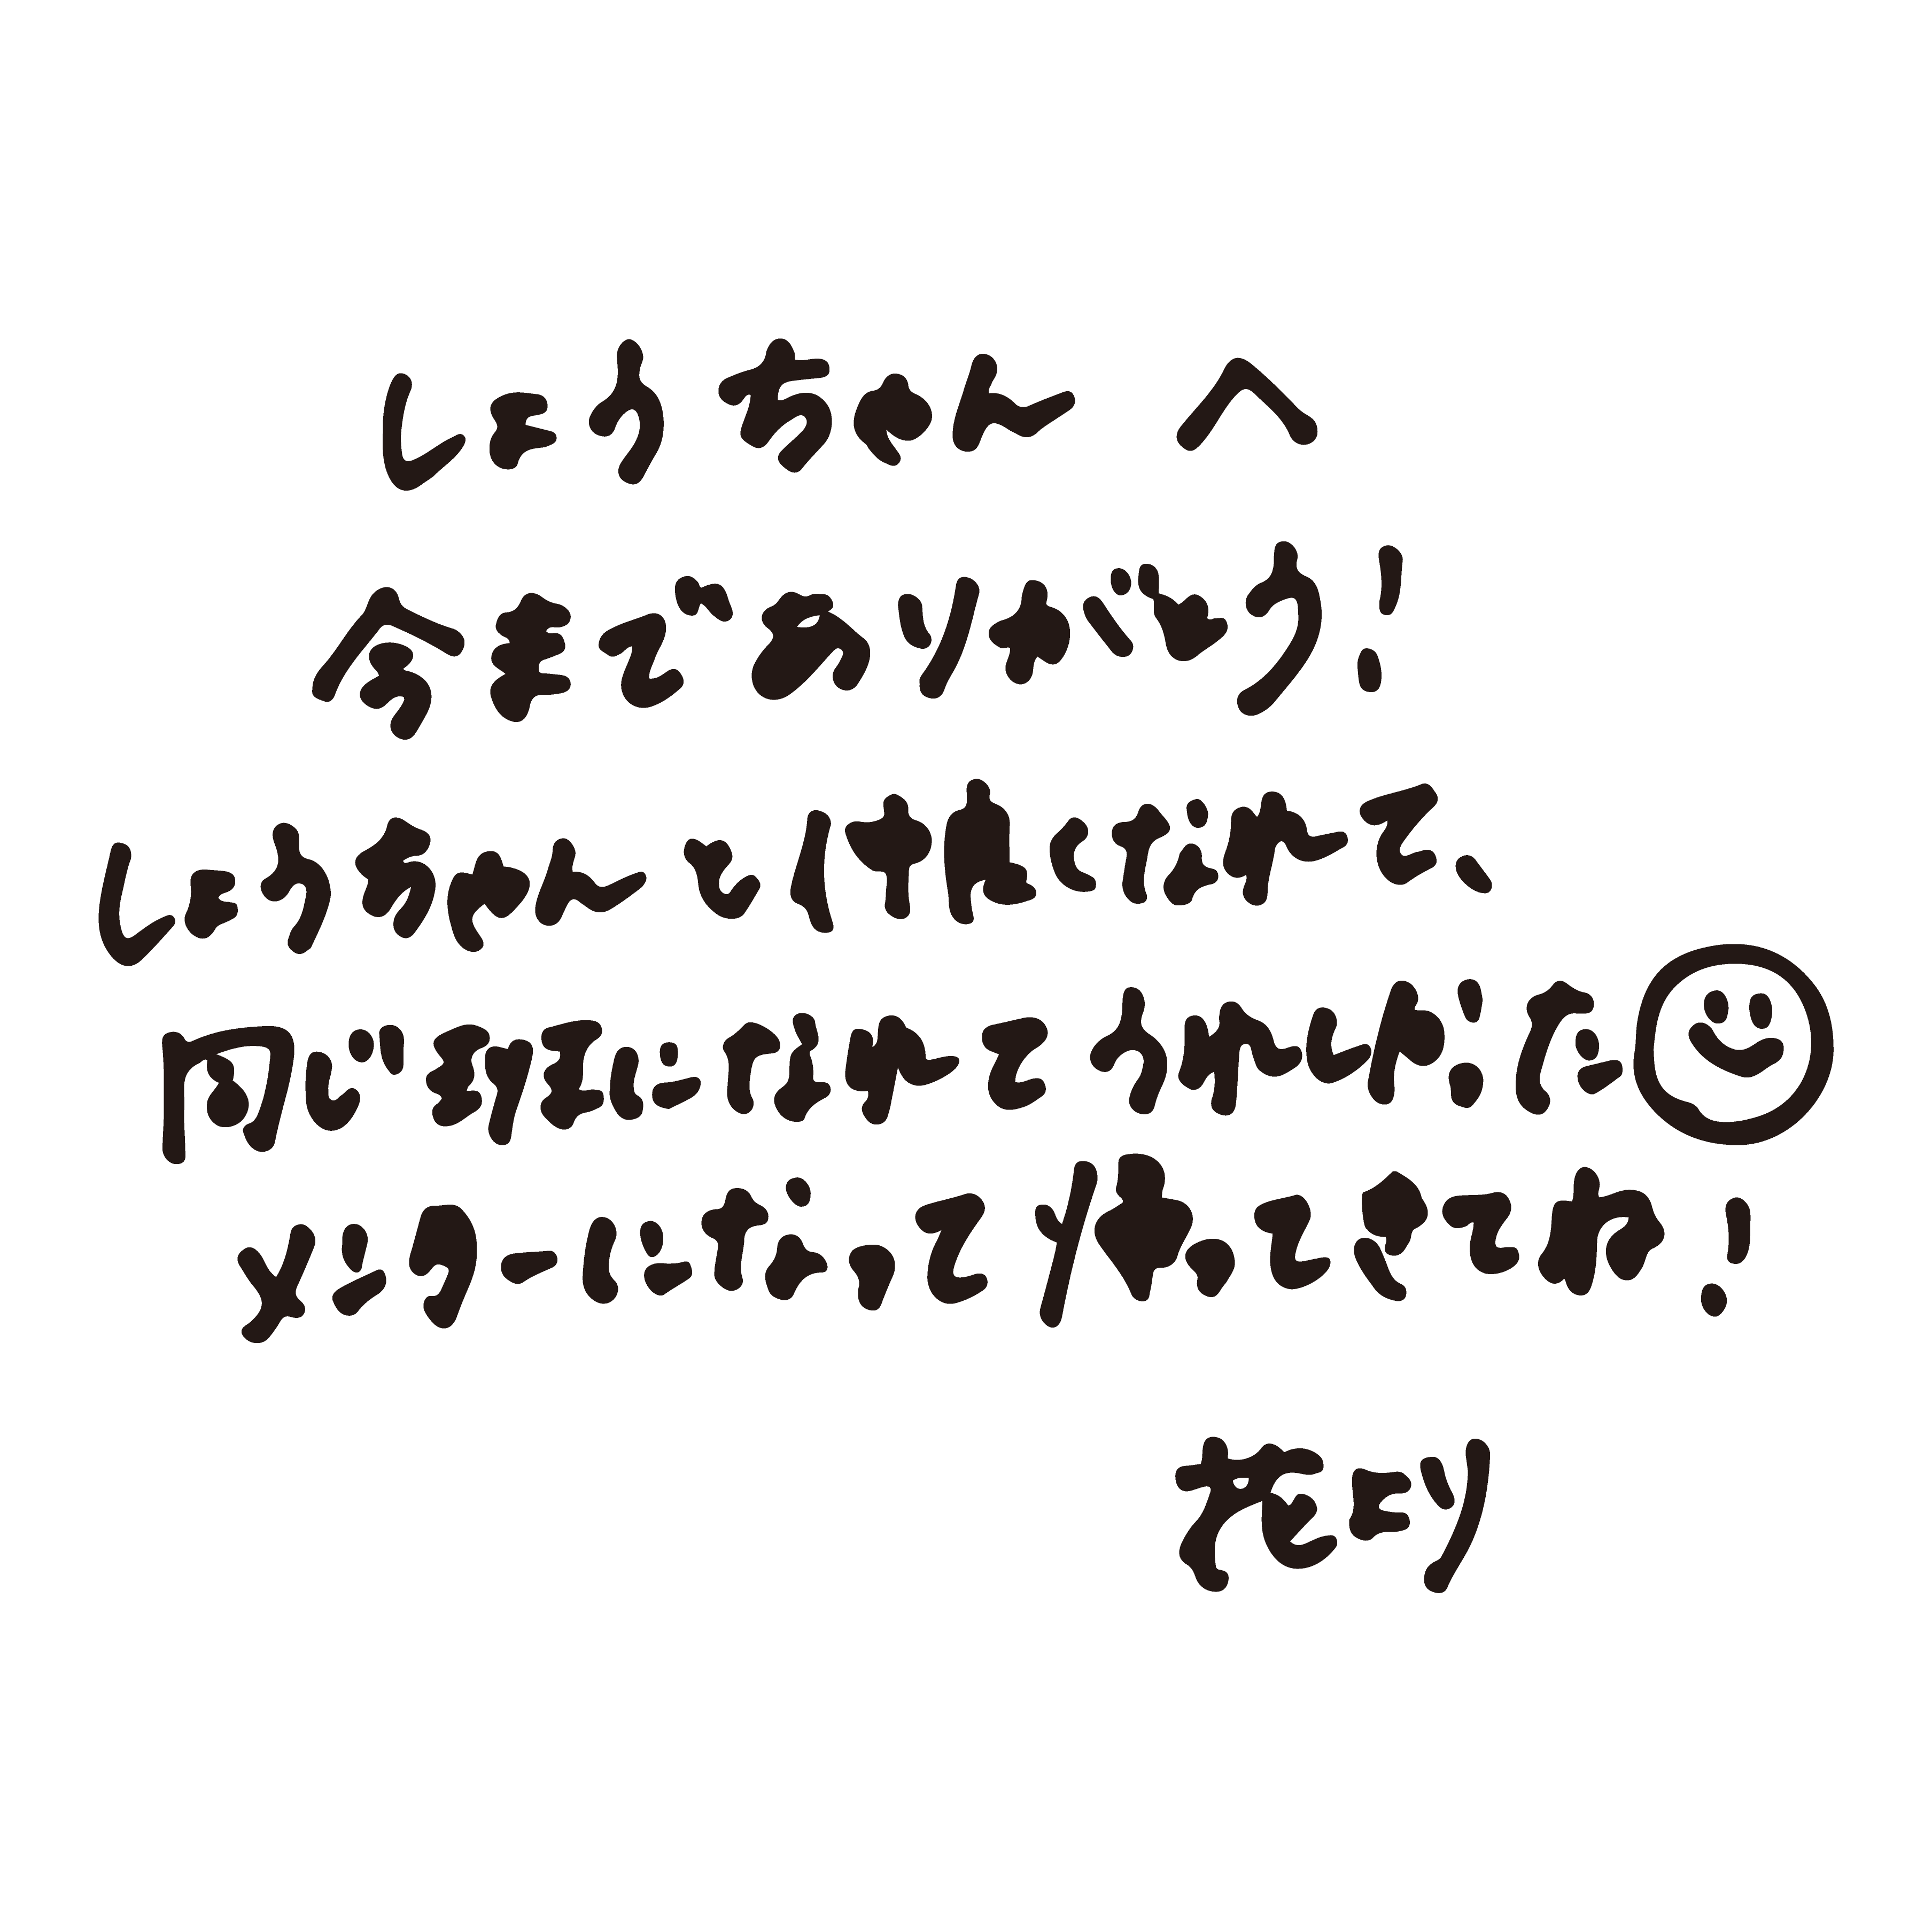 しょうちゃん へ
今まであリがとう!
しょうちゃんと仲良くなれて、
同じ部活になれてうれしかった
メンターになって休んできてね!
花より